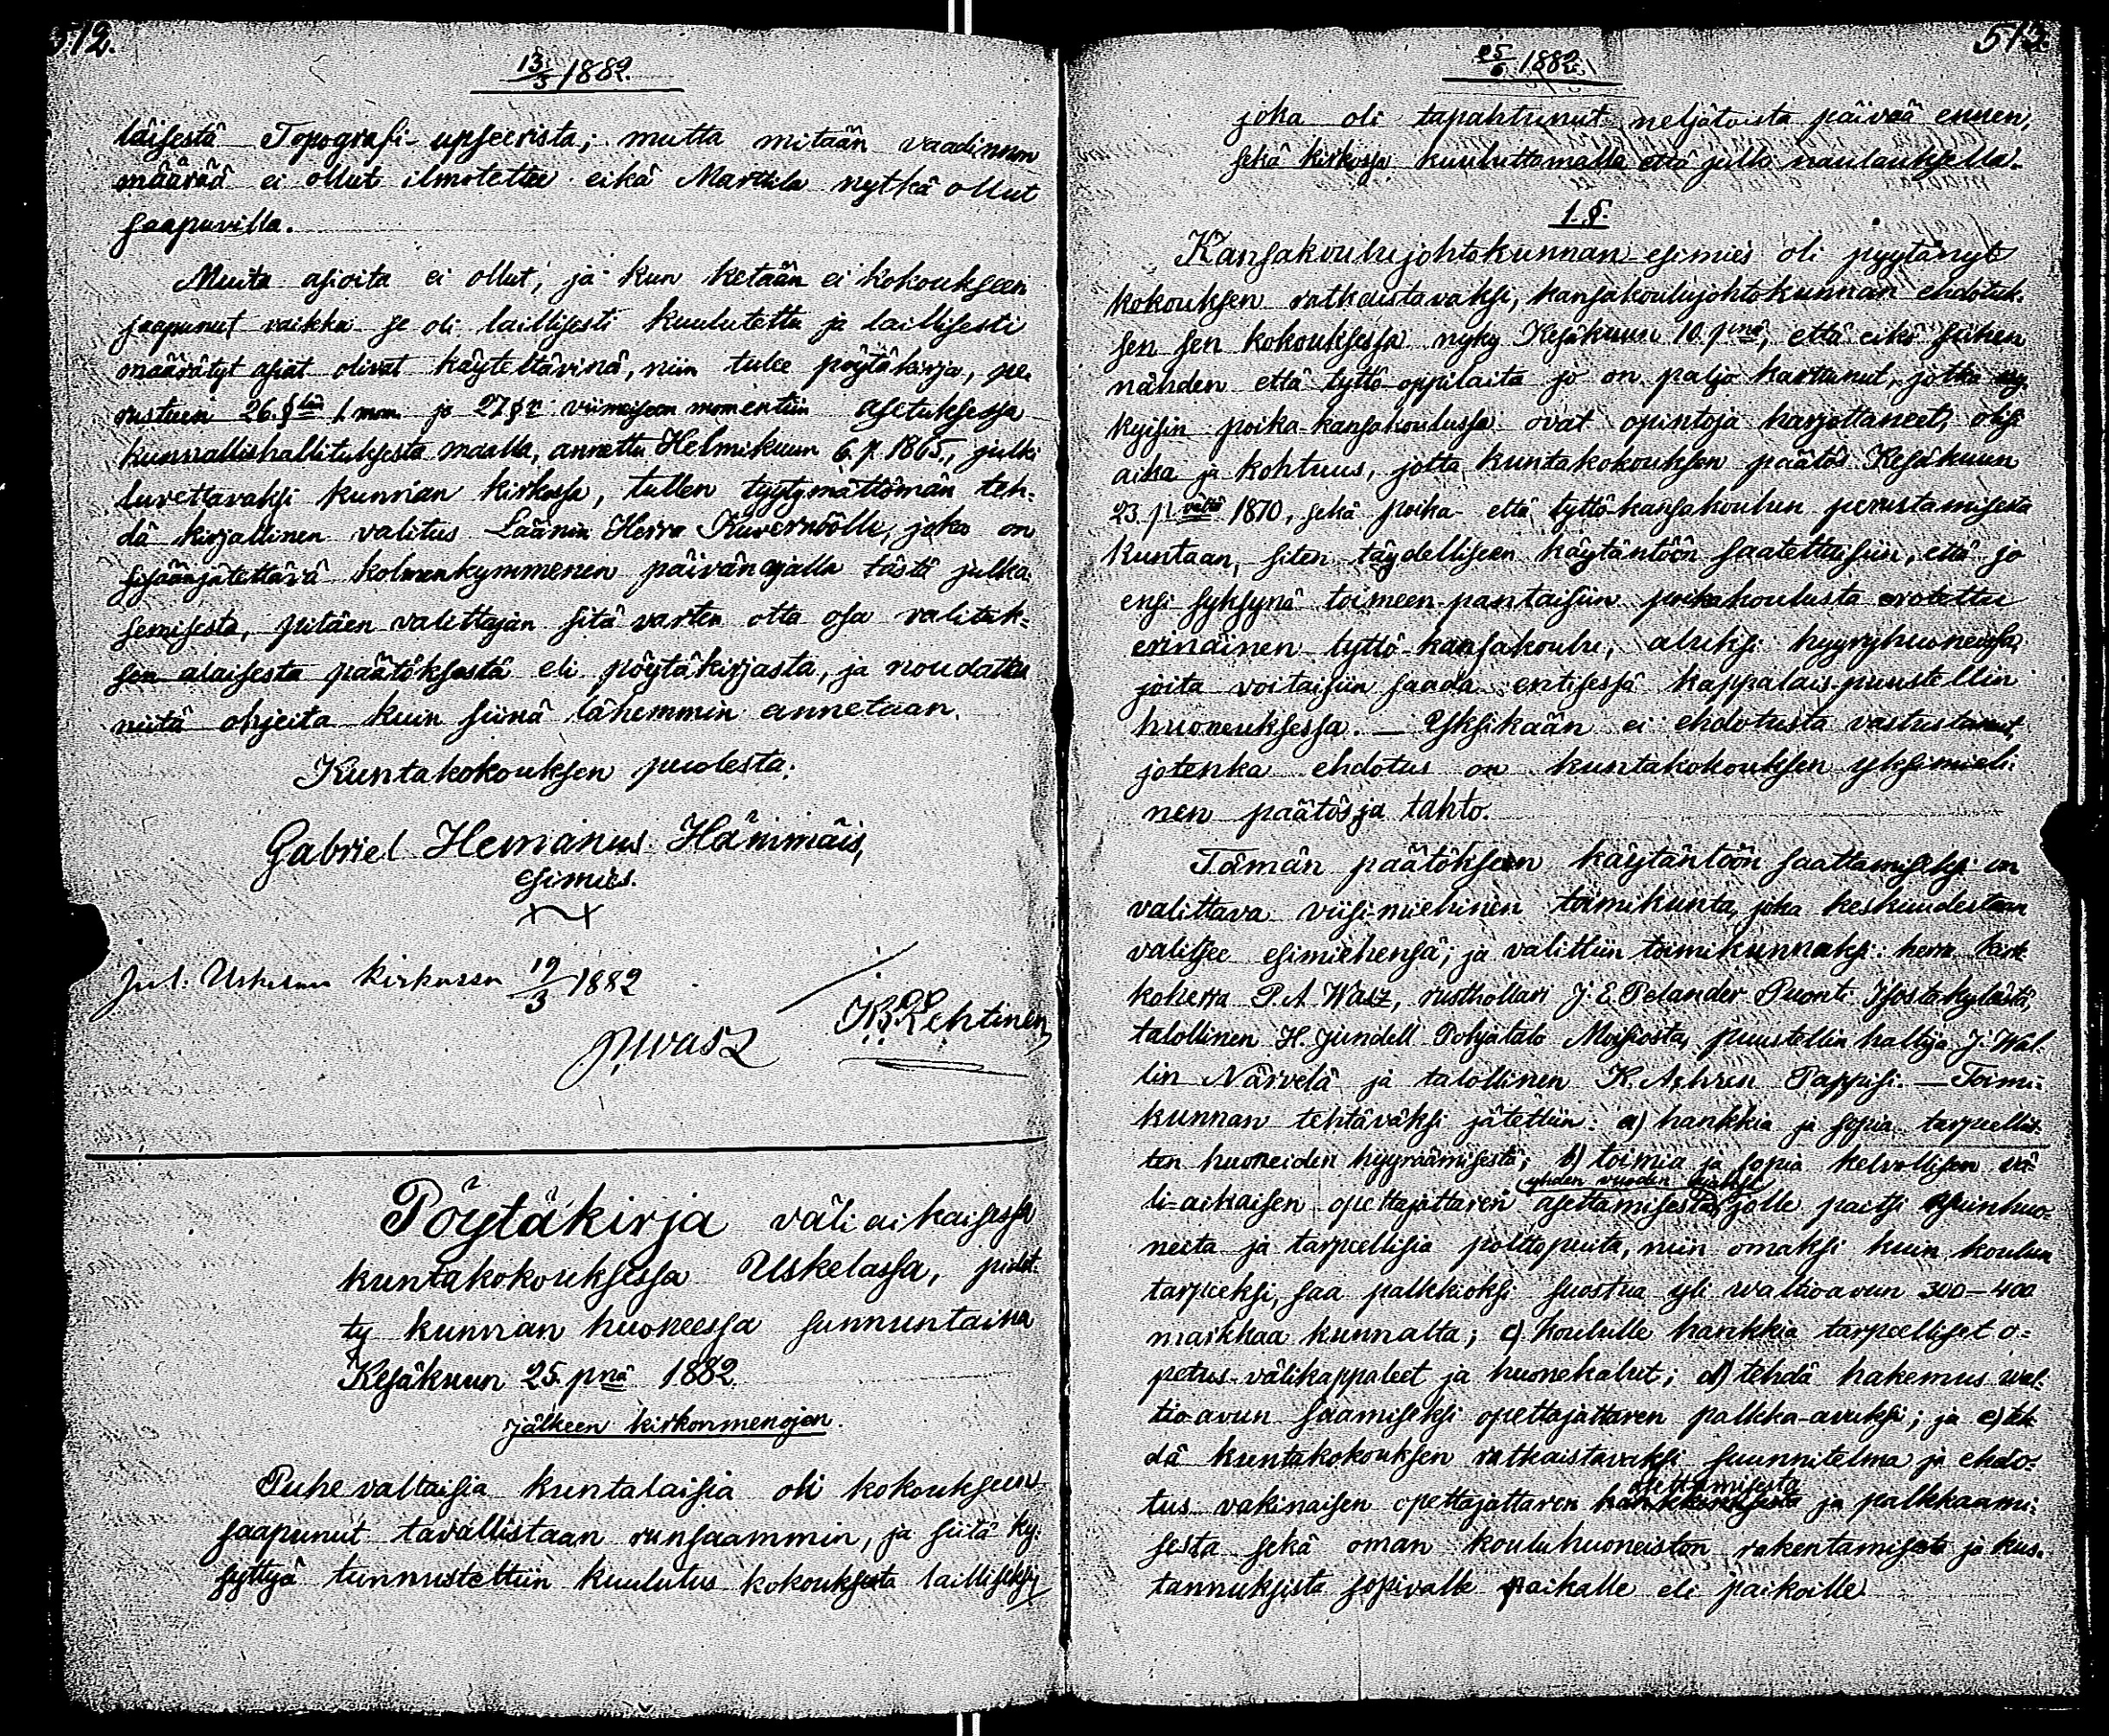 512.
13/3 1882.
läisestä Topografi-upseerista; mutta mitään vaadinnon
määrää ei ollut ilmotettu eikä Marttila nytkä ollut
saapuvilla.
Muita asioita ei ollut, ja kun ketään ei kokoukseen
saapunut vaikka se oli laillisesti kuulutettu ja laillisesti
määrätyt asiat olivat käytettävinä, niin tulee pöytäkirja, pe-
rusteen 26. § 1 mom. ja 27 § viimeiseen momentiin asetuksessa
kunnallishallituksesta maalla, annettu Helmikuun 6. p. 1865, julki
luvettavaksi kunnan kirkossa, tullen tyytymättömän teh-
dä kirjallinen valitus Läänin Herra Kuvernöölle, joka on
sisäänjätettävä kolmenkymmenen päivän ajalla tästä julka-
semisesta, pitäen valittajan sitä varten otta osa valituk-
sen alaisesta päätöksestä eli pöytäkirjasta, ja noudattaa
niitä ohjeita kuin siinä lähemmin annetaan.
Kuntakokouksen puolesta:
Gabriel Hemanus Hänimäis,
esimies.
Jul. Uskelan kirkossa 19/3 1882
PAWasz K B Lehtinen
Pöytäkirja väliaikaisessa
kuntakokouksessa Uskelassa, pidet-
ty kunnan huoneessa sunnuntaina
Kesäkuun 25. pnä 1882.
jälkeen kirkonmenojen.
Puhevaltaisia kuntalaisia oli kokoukseen
saapunut tavallistaan runsaammin, ja siitä ky-
syttyä tunnustettiin kuulutus kokouksesta lailliseksi,
513.
25/6 1882.
joka oli tapahtunut neljätoista päivää ennen,
sekä kirkossa kuuluttamalla että julki naulauksella.
1. §.
Kansakoulujohtokunnan esimies oli pyytänyt
kokouksen ratkaistavaksi, kansakoulujohtokunnan ehdotuk-
sen sen kokouksessa nyky Kesäkuun 10. pnä, että eikö siihen
nähden että tyttö-oppilaita jo on paljo karttunut, jotka ny-
kyisin poika-kansakoulussa ovat opintoja harjottaneet, olisi
aika ja kohtuus, jotta kuntakokouksen päätös Kesäkuun
23. pvältä 1870, sekä poika- että tyttö-kansakoulun perustamisesta
kuntaan, siten täydelliseen käytäntöön saatettaisiin, että jo
ensi syksynä toimeen-pantaisiin poikakoulusta erotettu
erinäinen tyttö-kansakoulu, aluksi hyyryhuoneissa,
joita voitaisiin saada entisessä kappalais-puustellin
huoneuksessa. — Yksikään ei ehdotusta vastustanut,
jotenka ehdotus on kuntakokouksen yksimieli-
nen päätös ja tahto.
Tämän päätöksen käytäntöön saattamiseksi on
valittava viisi-miehinen toimikunta, joka keskuudestaan
valitsee esimiehensä; ja valittiin toimikunnaksi: herra kirk-
koherra P. A. Wasz, rusthollari J. E. Pelander Puonti Isostakylästä,
talollinen H. Jundell Pohjatalo Moisiosta, puustellin haltija J. Wal-
lin Närvelä ja talollinen K. Aghren Pappisi. — Toimi-
kunnan tehtäväksi jätettiin: a) hankkia ja sopia tarpeellis-
ten huoneiden hyyräämisestä; b) toimia ja sopia kelvollisen vä-
yhden vuoden ajaksi
li-aikaisen opettajattaren asettamisesta, jolle paitsi asuinhuo-
neita ja tarpeellisia polttopuita, niin omaksi kuin koulun
tarpeeksi, saa palkkioksi suostua yli waltioavun 300–400
markkaa kunnalta; c) koululle hankkia tarpeelliset o-
petus-välikappaleet ja huonekalut; d) tehdä hakemus wal-
tio-avun saamiseksi opettajattaren palkka-avuksi; ja e) teh-
dä kuntakokouksen ratkaistavaksi suunnitelma ja ehdo-
asettamisesta
tus vakinaisen opettajattaren hankkimisesta ja palkkaami-
sesta sekä oman kouluhuoneiston rakentamisesta ja kus-
tannuksista sopivalle paikalle eli paikoille